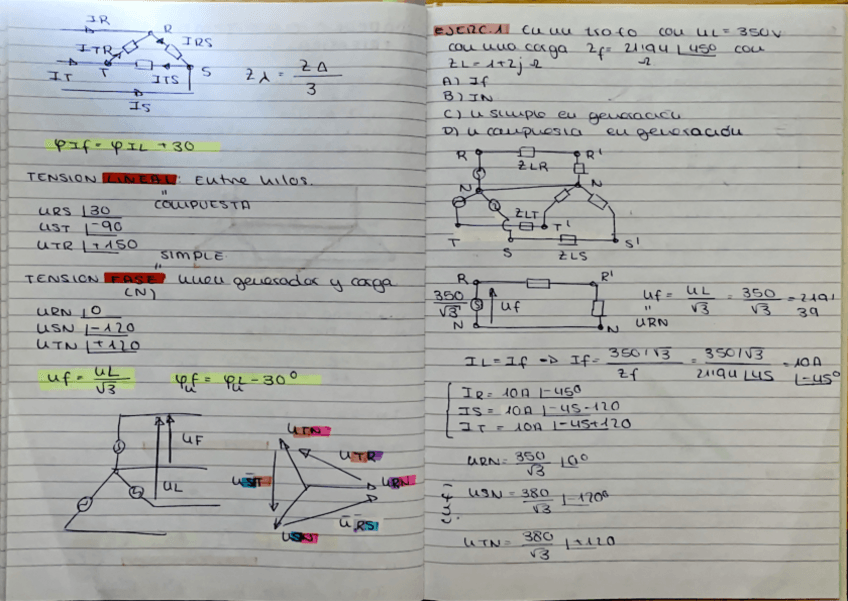 IR
R
ITR
IRS
T
ITS
S
IT
IS
Zλ = ZΔ / 3
φIf = φIL + 30
TENSION LINEAL: Entre hilos.
"
COMPUESTA
URS |30
UST |-90
UTR |+150
SIMPLE
"
TENSION FASE unen generador y carga
(N)
URN |0
USN |-120
UTN |+120
Uf = UL / √3 φfu = φLu - 30°
UF
UL
UTN
UTR
UST
URN
URS
USN
EJERC.1 Cn un trafo con UL = 350V
con una carga Zf = 21'94 |45° con
Ω
ZL = 1+2j Ω
A) If
B) IN
C) U simple en generación
D) U compuesta en generación
R R'
ZLR
N N
ZLT
T' T
S S'
ZLS
R R'
350/√3 Uf
N N
Uf = UL/√3 = 350/√3 = 219'39
"
URN
IL = If => If = 350/√3 / Zf = 350/√3 / 21'94 |45 = 10A |-45°
IR = 10A |-45°
IS = 10A |-45-120
IT = 10A |-45+120
URN = 350/√3 |0°
USN = 380/√3 |-120°
UTN = 380/√3 |+120